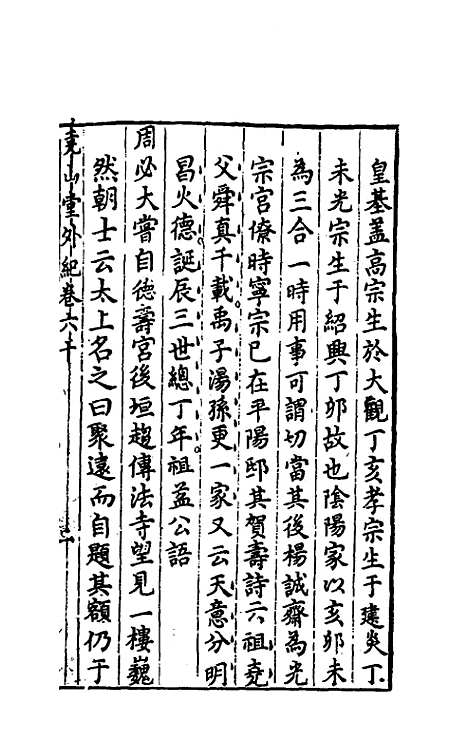 皇基蓋高宗生於大觀丁亥孝宗生于建炎丁
未光宗生于紹興丁卯故也陰陽家以亥卯未
為三合一時用事可謂切當其後楊誠齋為光
宗宮僚時寧宗已在平陽邸其賀壽詩云祖堯
父舜真千載禹子湯孫更一家又云天意分明
昌火德誕辰三世總丁年祖益公語
周必大嘗自德壽宮後垣趨傳法寺望見一樓巍
然朝士云太上名之曰聚遠而自題其額仍于
堯山堂外紀卷六十